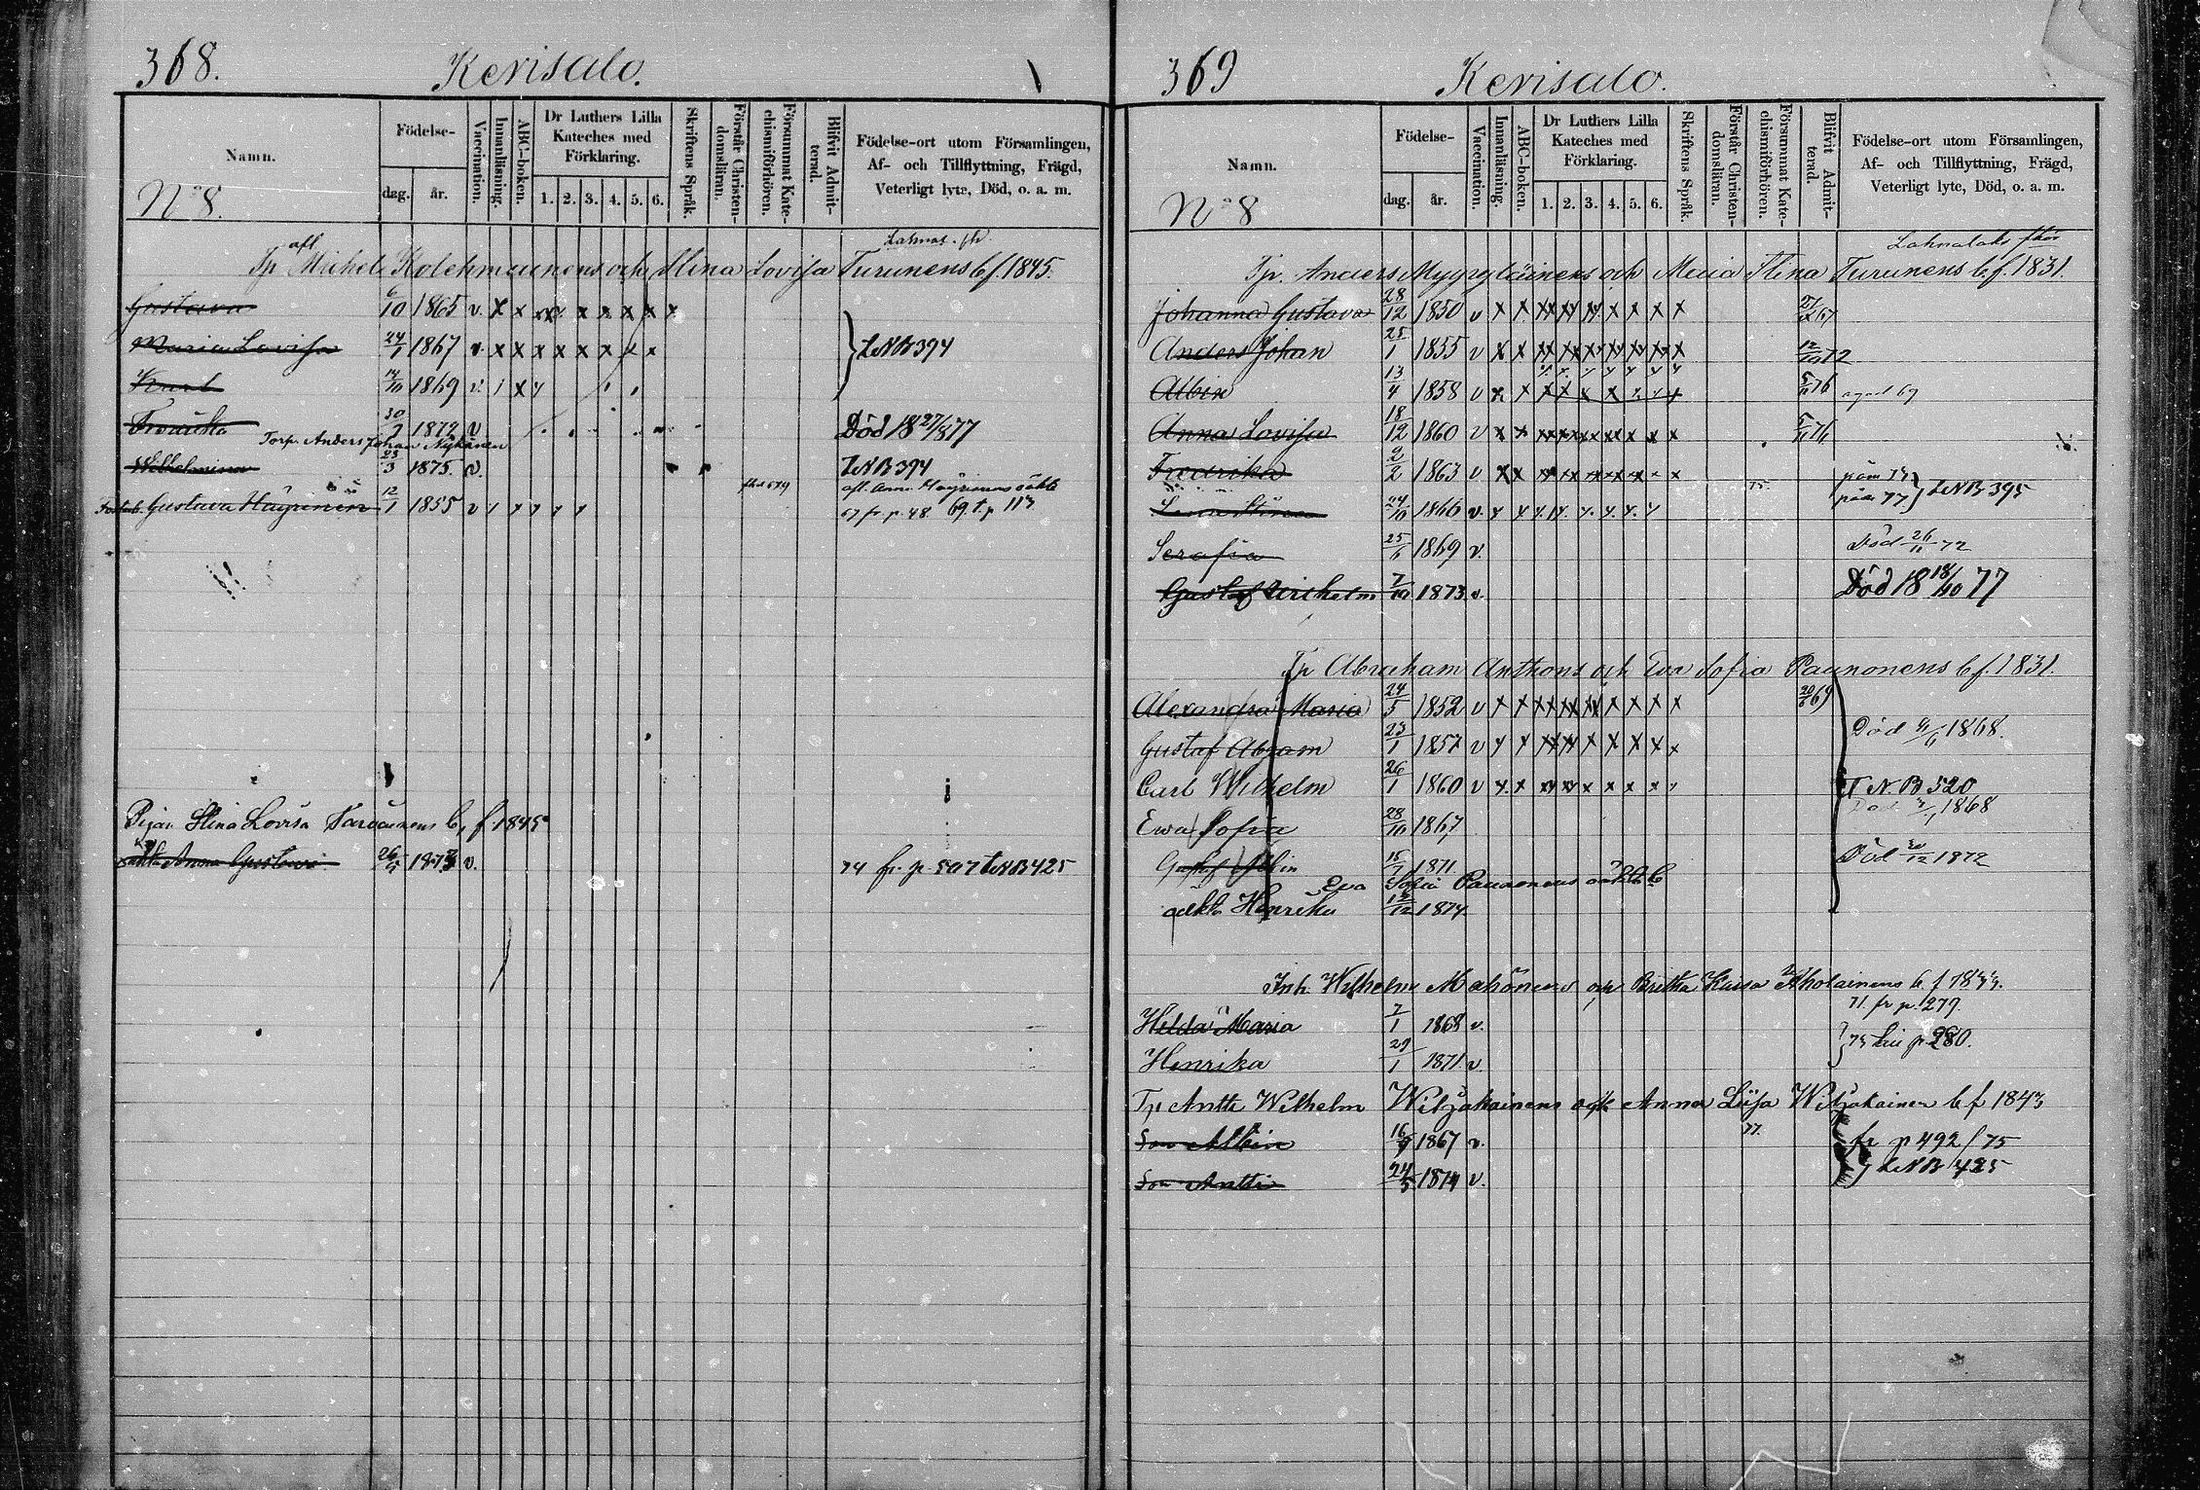 368. Kerisalo.
Namn.
Födelse-
dag. år.
Vaccination.
Innanläsning.
ABC-boken.
Dr Luthers Lilla Kateches med Förklaring.
1. 2. 3. 4. 5. 6.
Skriftens Språk.
Förstår Christen-domsläran.
Försummat Kate-chismiförhören.
Blifvit Admit-terad.
Födelse-ort utom Församlingen,
Af- och Tillflyttning, Frägd,
Veterligt lyte, Död, o. a. m.
No 8.
afl
Tp Michel Kolehmainens och Stina Lovisa Turunens b f. 1845.
Gustava 6/10 1865 v. x x x x x x x x
Maria Lovisa 24/1 1867 v. x x x x x x x x } LNB 394
Karl 14/10 1869 v. x
30/7 1872 v Död 18 27/8 77
Torp. Anders Johan Nykänen
Wilhelmina 23/3 1875. v. LNB 394
Gustava Häyrinen 12/1 1855 v
67 fr. p. 48 69 t. p 113
Pigan Stina Lovisa b, f 1845
Anna Gustava 1873 v. 74 fr. p 507 t NB 425
369 Kerisalo.
Namn.
Födelse-
dag. år.
Vaccination.
Innanläsning.
ABC-boken.
Dr Luthers Lilla Kateches med Förklaring.
1. 2. 3. 4. 5. 6.
Skriftens Språk.
Förstår Christen-domsläran.
Försummat Kate-chismiförhören.
Blifvit Admit-terad.
Födelse-ort utom Församlingen,
Af- och Tillflyttning, Frägd,
Veterligt lyte, Död, o. a. m.
No 8
Tp. Anders Myyryläinens och Maia Stina Turunens b f. 1831.
Johanna Gustava 28/12 1850 v x x x x x x x x x
Anders Johan 25/1 1855 v x x x x x x x x x 12/10 72
Albin 13/4 1858 v x x x x x x
Anna Lovisa 18/12 1860 v x x x x x x x x x
Fredrika 2/2 1863 v x x x x x x x x x
24/10 1866 v. } LNB 395
Serafia 25/6 1869 v. Död 26/11 72
Gustaf Wilhelm 7/10 1873 v. Död 18 18/10 77
Tp Abraham Anthons och Eva Sofia Paunonens b f. 1831.
Alexandra Maria 24/5 1852 v x x x x x x x x x 20/6 69
Gustaf Abram 23/1 1857 v x x x x x x x x Död 1868.
Carl Wilhelm 26/1 1860 v x x x x x x x T. N. B 520
Ewa Sofia 28/10 1867 1868
Gustaf Albin 15/7 1871 Död 1872
Eva Sofia Paunonens
Henrika 1874
Inh. Wilhelm Makönens och Britha Kaisa b f
71 fr p. 279.
Hilda Maria 7/1 1868 v.
Henrika 29/1 1871 v. p 280.
Tp Antti Wilhelm Wiljakainens och Anna Liisa Wiljakainen b f 1843
77.
Son Albin 16/9 1867 v. fr p 492/75
Son Antti 24/3 1874 v. LNB 425